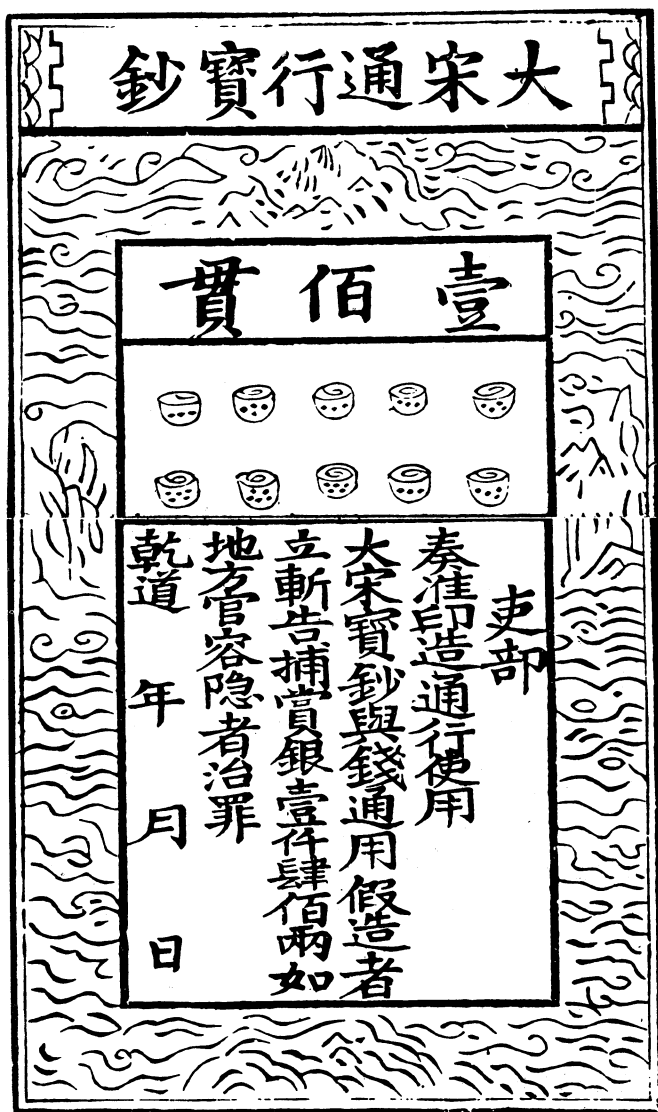 大宋通行寶鈔
壹佰貫
吏部
奏准印造通行使用
大宋寶鈔與錢通用假造者
立斬告捕賞銀壹仟肆佰兩如
地方官容隐者治罪
乾道　年　月　日